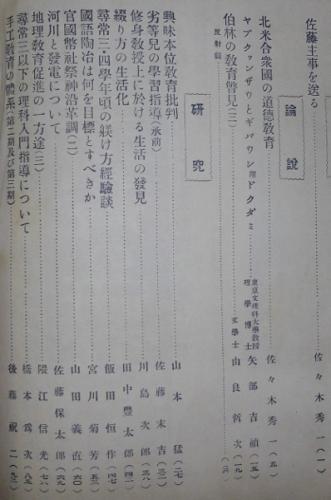 佐藤主事を送る……佐々木秀一(一)
論說
北米合衆國の道德教育……佐々木秀一(五)
ヤブクヮンザウとギバウシ 附ドクダミ……東京文理科大學教授 理學博士 矢部吉禎(一五)
伯林の教育瞥見(三)……文學士 由良哲次(一九)
反射鏡……(三)
研究
興味本位教育批判……山本猛(二七)
劣等兒の學習指導(承前)……佐藤末吉(三)
修身教授に於ける生活の發見……川島次郎(三八)
綴り方の生活化……田中豐太郎(四一)
尋常三・四學年頃の躾け方經驗談……飯田恒作(四七)
國語陶冶は何を目標とすべきか……宮川菊芳(五一)
官國幣社祭神沿革調(二)……山田義直(五四)
河川と發電について……佐藤保太郎(六〇)
地理教育促進の一方途(三)……隈江信光(七六)
尋常三以下の理科入門指導について……橋本爲次(八三)
手工教育の體系(第二期及び第三期)……後藤祝二(九三)